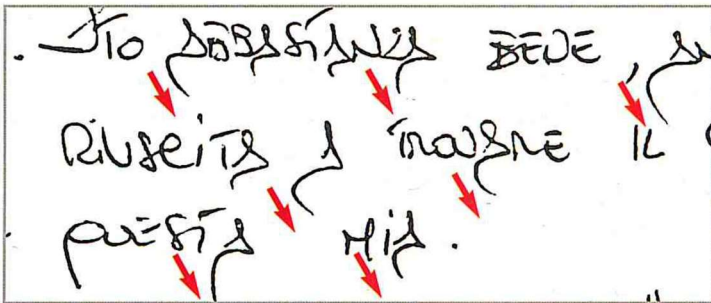 Sto ABBASTANZA BENE,
RIUSCITA A TROVARE IL
QUESTA MIA.